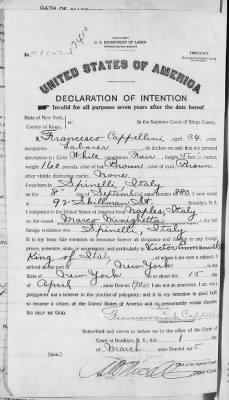 OATH OF AL
U. S. DEPARTMENT OF LABOR
TRIPLICATE
UNITED STATES OF AMERICA
DECLARATION OF INTENTION
Invalid for all purposes seven years after the date hereof
State of New York,
County of Kings,
In the Supreme Court of Kings County.
I, Francesco Cappellini, aged 34 years,
occupation Laborer, do declare on oath that my personal
description is: Color White, complexion Fair, height 5 feet inches,
weight 160 pounds, color of hair Brown, color of eyes Brown
other visible distinctive marks None
I was born in Spinelli, Italy
on the 8 day of September, anno Domini 1880; I now reside
at 92 Skillman St., Brooklyn, N. Y.
I emigrated to the United States of America from Naples, Italy
on the vessel Marco Minighetta; my last
foreign residence was Spinelli, Italy
It is my bona fide intention to renounce forever all allegiance and fidelity to any foreign
prince, potentate, state, or sovereignty, and particularly to Victor Emmanuel
King of Italy, of whom I am now a subject; I
arrived at the port of New York, in the
State of New York, on or about the 15 day
of April, anno Domini; I am not an anarchist; I am not a
polygamist nor a believer in the practice of polygamy; and it is my intention in good faith
to become a citizen of the United States of America and to permanently reside therein:
SO HELP ME GOD.
Subscribed and sworn to before me in the office of the Clerk of
Court at Brooklyn, N. Y., this 1 day
of March, anno Domini 1915
[SEAL]